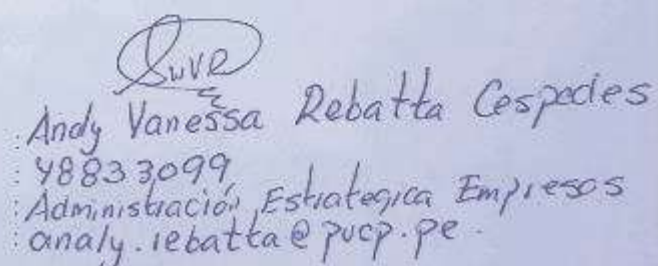 : Andy Vanessa Rebatta Cespedes
: 48833099
: Administración Estrategica Empresas
: analy.rebatta@pucp.pe.